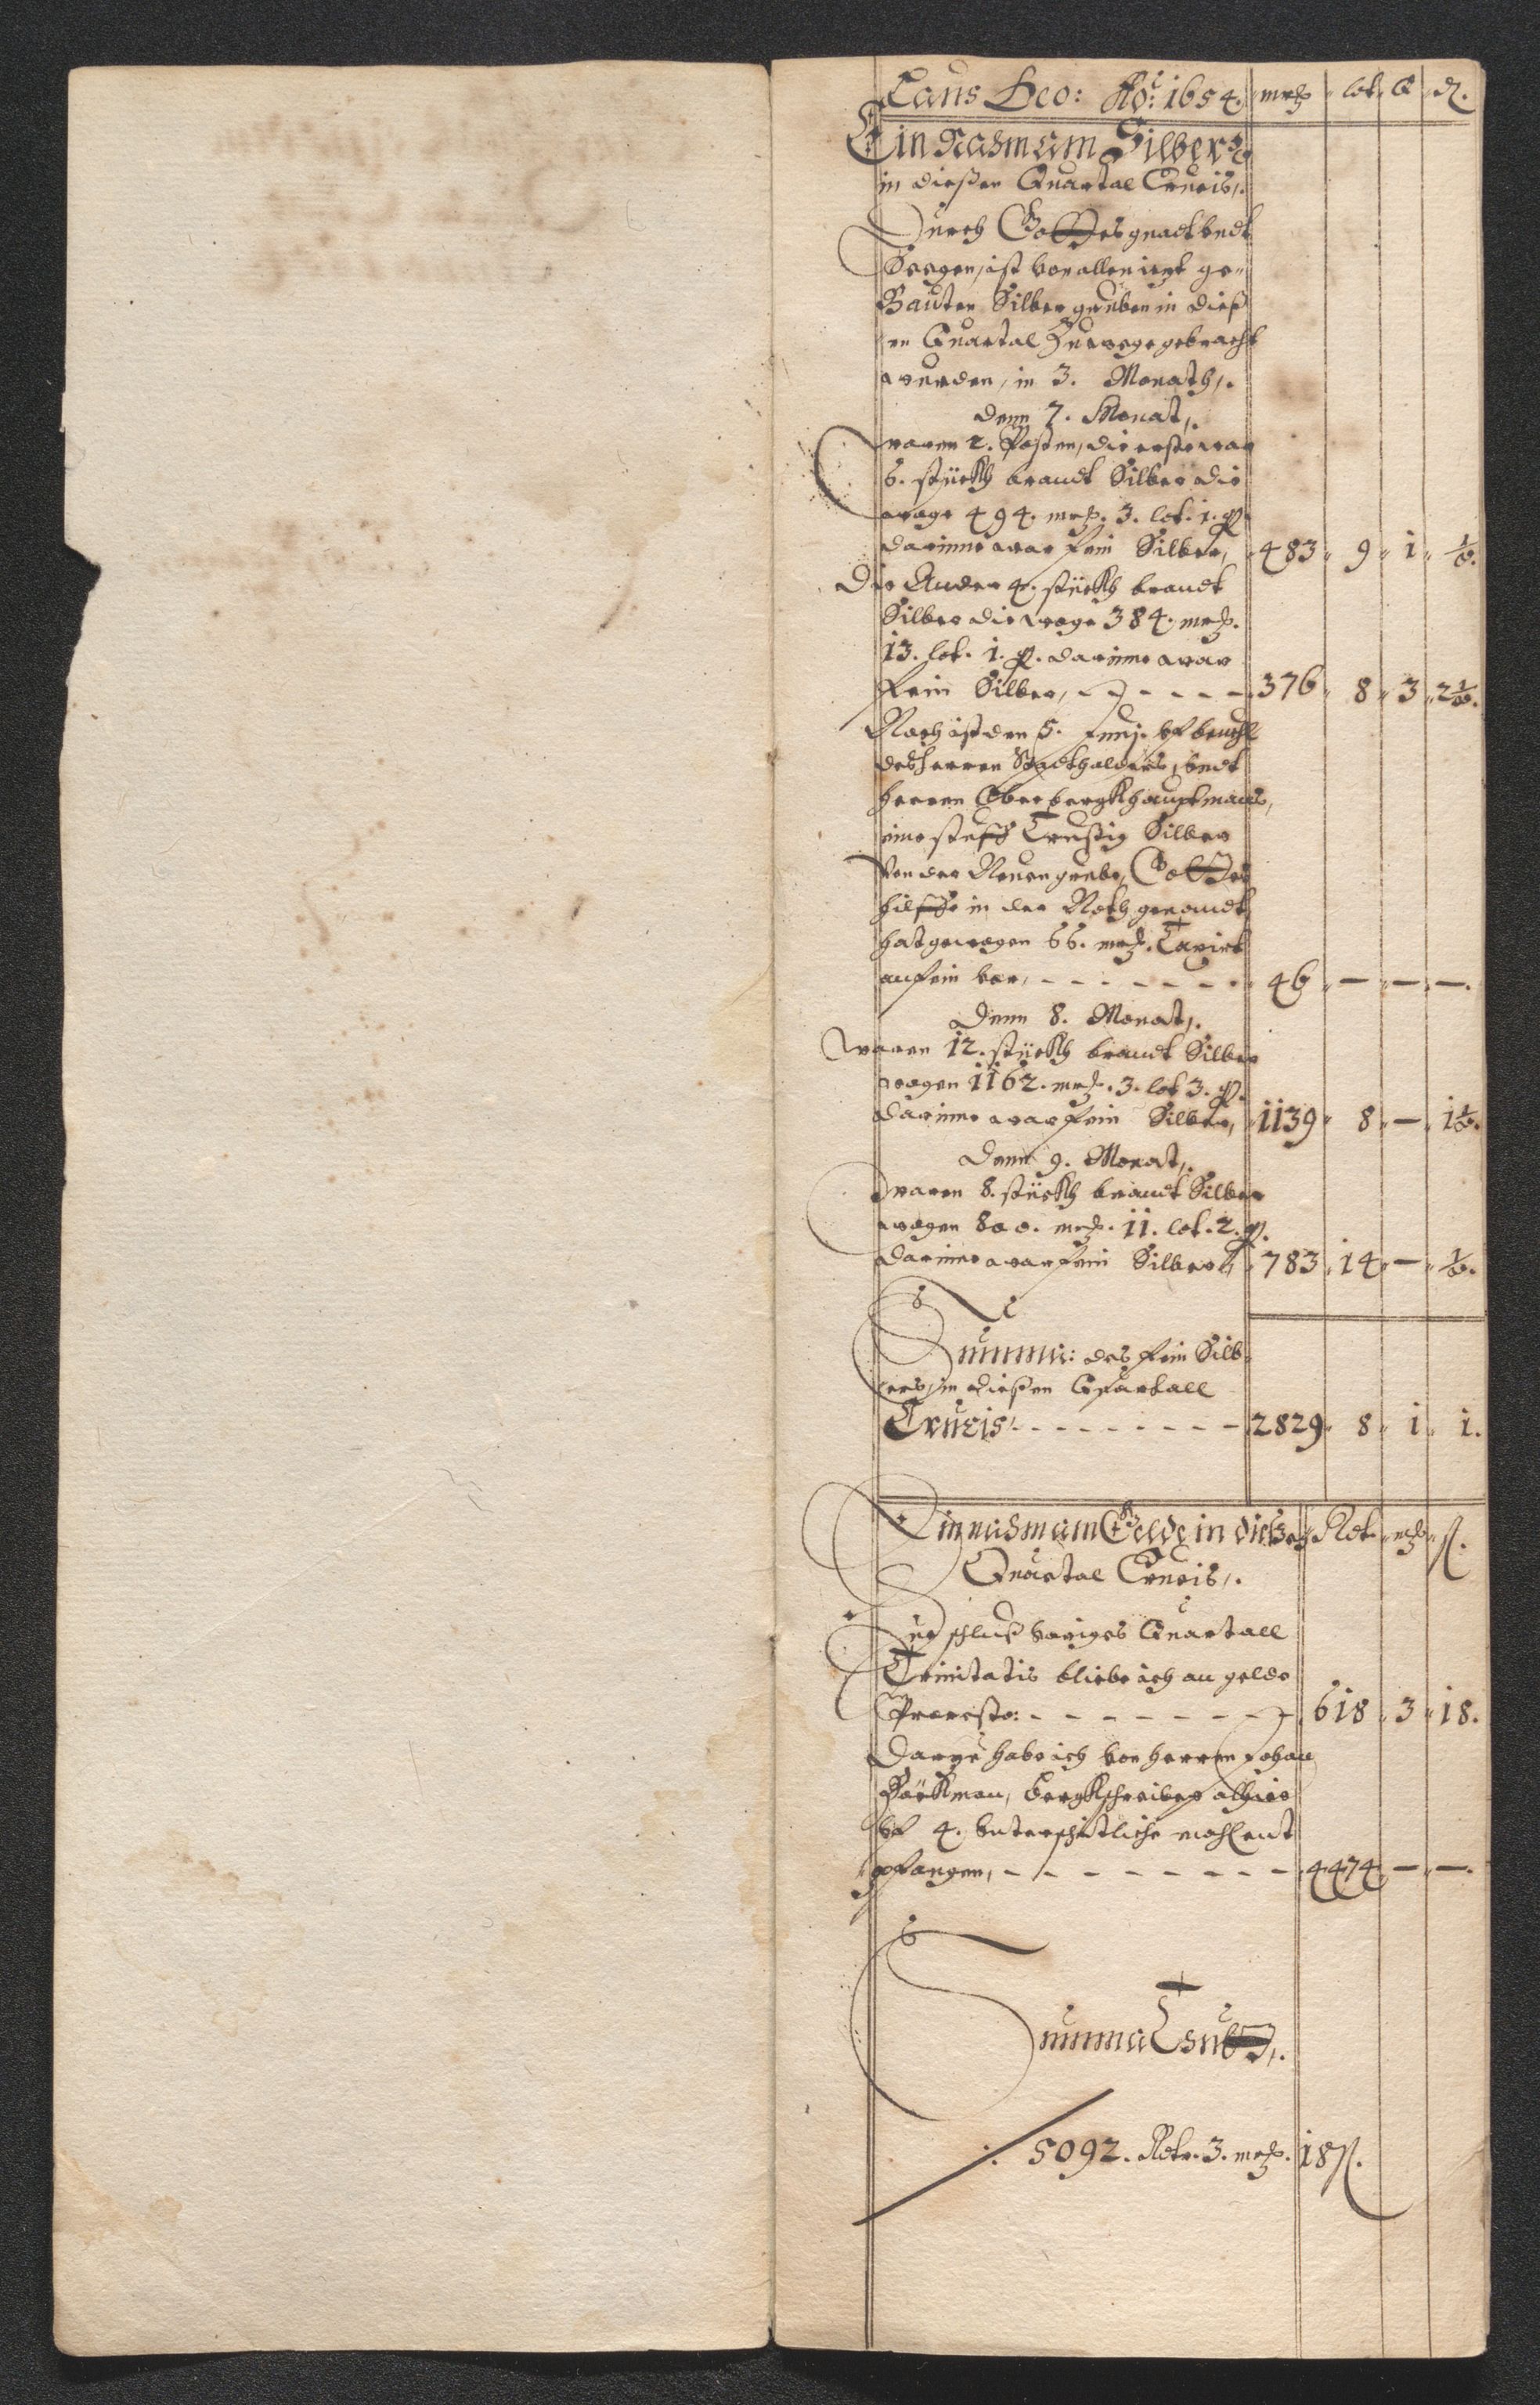 Laus Deo: Ao: 1654. mrk lot. Q d.
Ein Nahmam Silber
in dießen Quartal Crucis,.
Durch Gottes gnadt vndt
Seegen, ist von allen izt ge-
Bauten Silbergruben in dieß
en Quartal Zuwege gebracht
wurden, in 3. Monath,.
Denn 7. Monat,.
waren 2. Posten, die erste war
6. stückh brandt Silber die
wage 494. mrk. 3. lot. 1. q.
darinne war fein Silber, 483 9 1 1/2.
Die Ander 4. stückh brandt
Silber die wage 384. mrk.
13. lot. 1. q. darinne war
fein Silber, - - - - - 376 8 3 2 1/2.
Noch ist den 5. Junj. vf beuehl
des herren Stadthalders, vndt
herren Oberbergkhauptmans,
eine stuff Crustig Silber
Von der Neuen grube, Gottes
hilffe in der Noth genandt
hat gewogen 66. mrk. Taxirt
an fein vor, - - - - - - 46 — — —.
Denn 8. Monat,.
waren 12. stückh brandt Silber
wogen 1162. mrk. 3. lot 3. q.
darinne war fein Silber, 1139 8 — 1 1/2.
Denn 9. Monat,.
waren 8. stückh brandt Silber
wogen 800. mrk. 11. lot. 2. q.
darinne war fein Silber, 783 14 — 1/2.
Summa: des fein Silb-
ers, in dießen Quartall
Crucis, - - - - - - - - 2829 8 1 1.
Einnahmam Gelde in dießen Rdt. mrk ß.
Quartal Crucis,.
Zur schluß voriges Quartall
Trinitatis bliebe ich an gelde
Proresto: - - - - - - - 618 3 18.
Darzu habe ich von herren Johan
bergkschreiber alhier
vf 4. vnterschitliche mahl ent
pfangen, - - - - - - - - 4474 — —.
Summa Thutt,.
5092. Rdtr. 3. mrk. 18 ß.